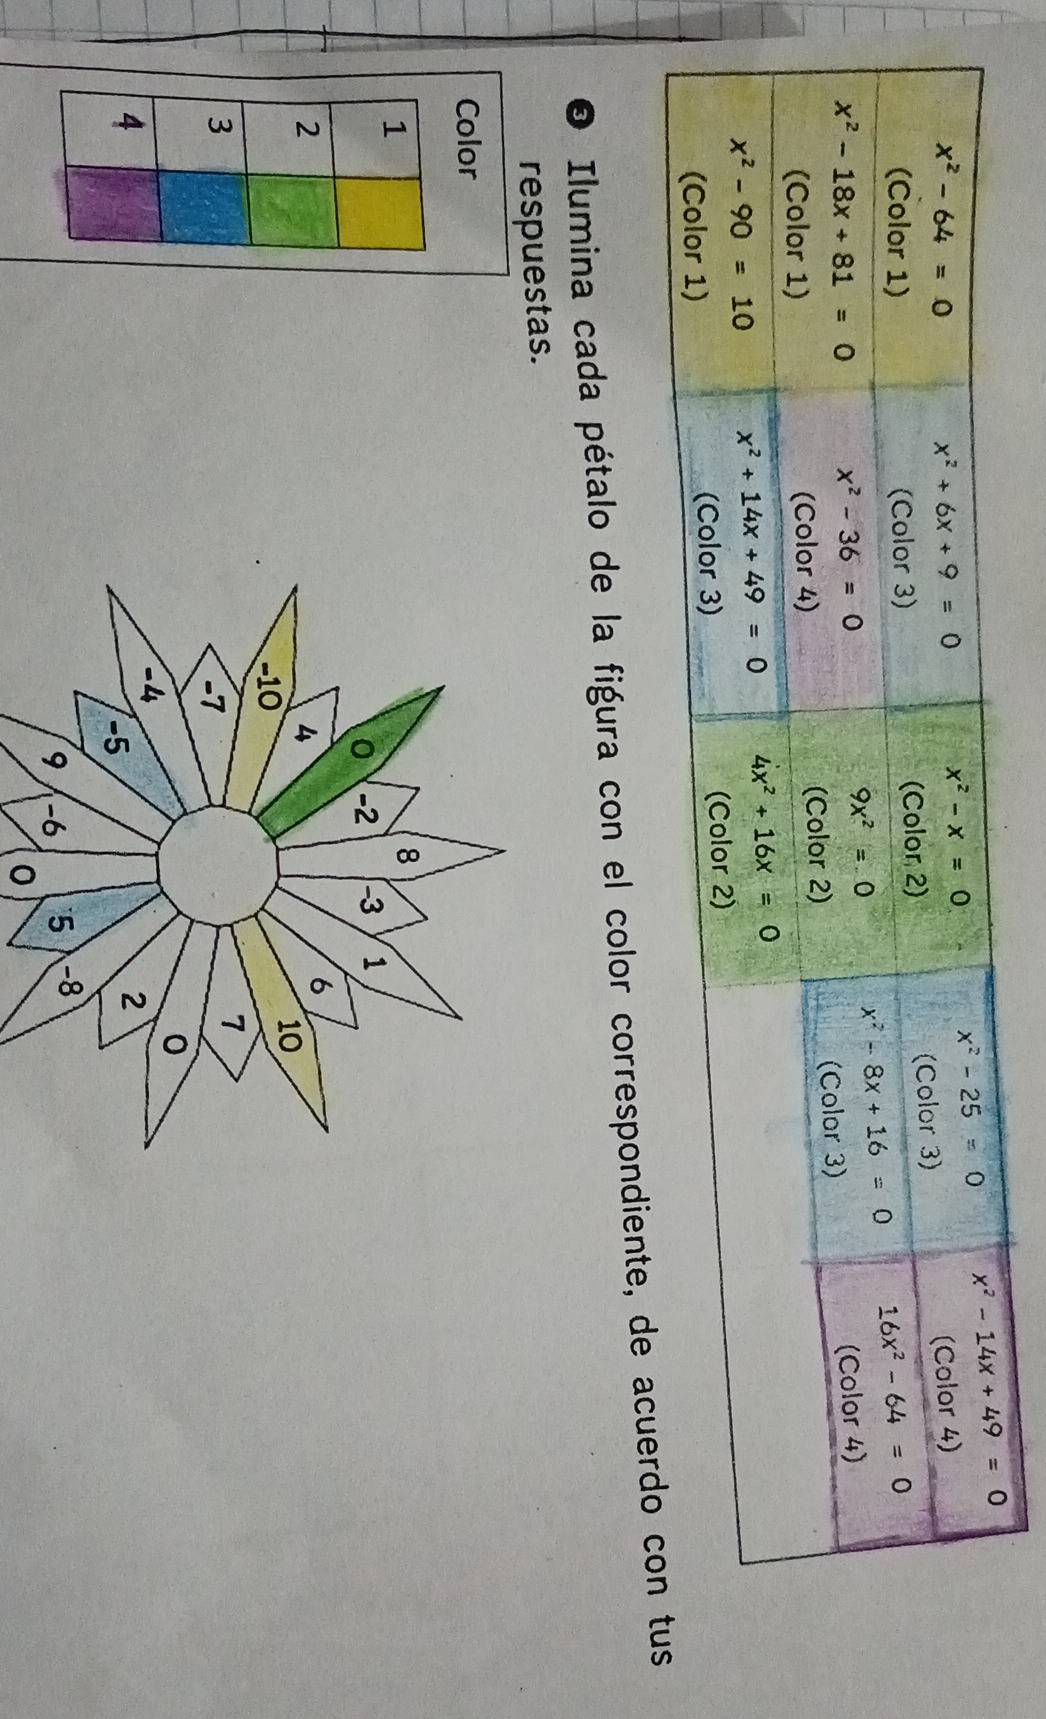 x² - 64 = 0 x² + 6x + 9 = 0 x² - x = 0 x² - 25 = 0 x² - 14x + 49 = 0
(Color 1) (Color 3) (Color 2) (Color 3) (Color 4)
x² - 18x + 81 = 0 x² - 36 = 0 9x² = 0 x² - 8x + 16 = 0 16x² - 64 = 0
(Color 1) (Color 4) (Color 2) (Color 3) (Color 4)
x² - 90 = 10 x² + 14x + 49 = 0 4x² + 16x = 0
(Color 1) (Color 3) (Color 2)
3 Ilumina cada pétalo de la figura con el color correspondiente, de acuerdo con tus
respuestas.
Color
1
2
3
4
8
-3
1
6
10
7
0
2
-8
5
0
-6
9
-5
-4
-7
-10
4
0
-2